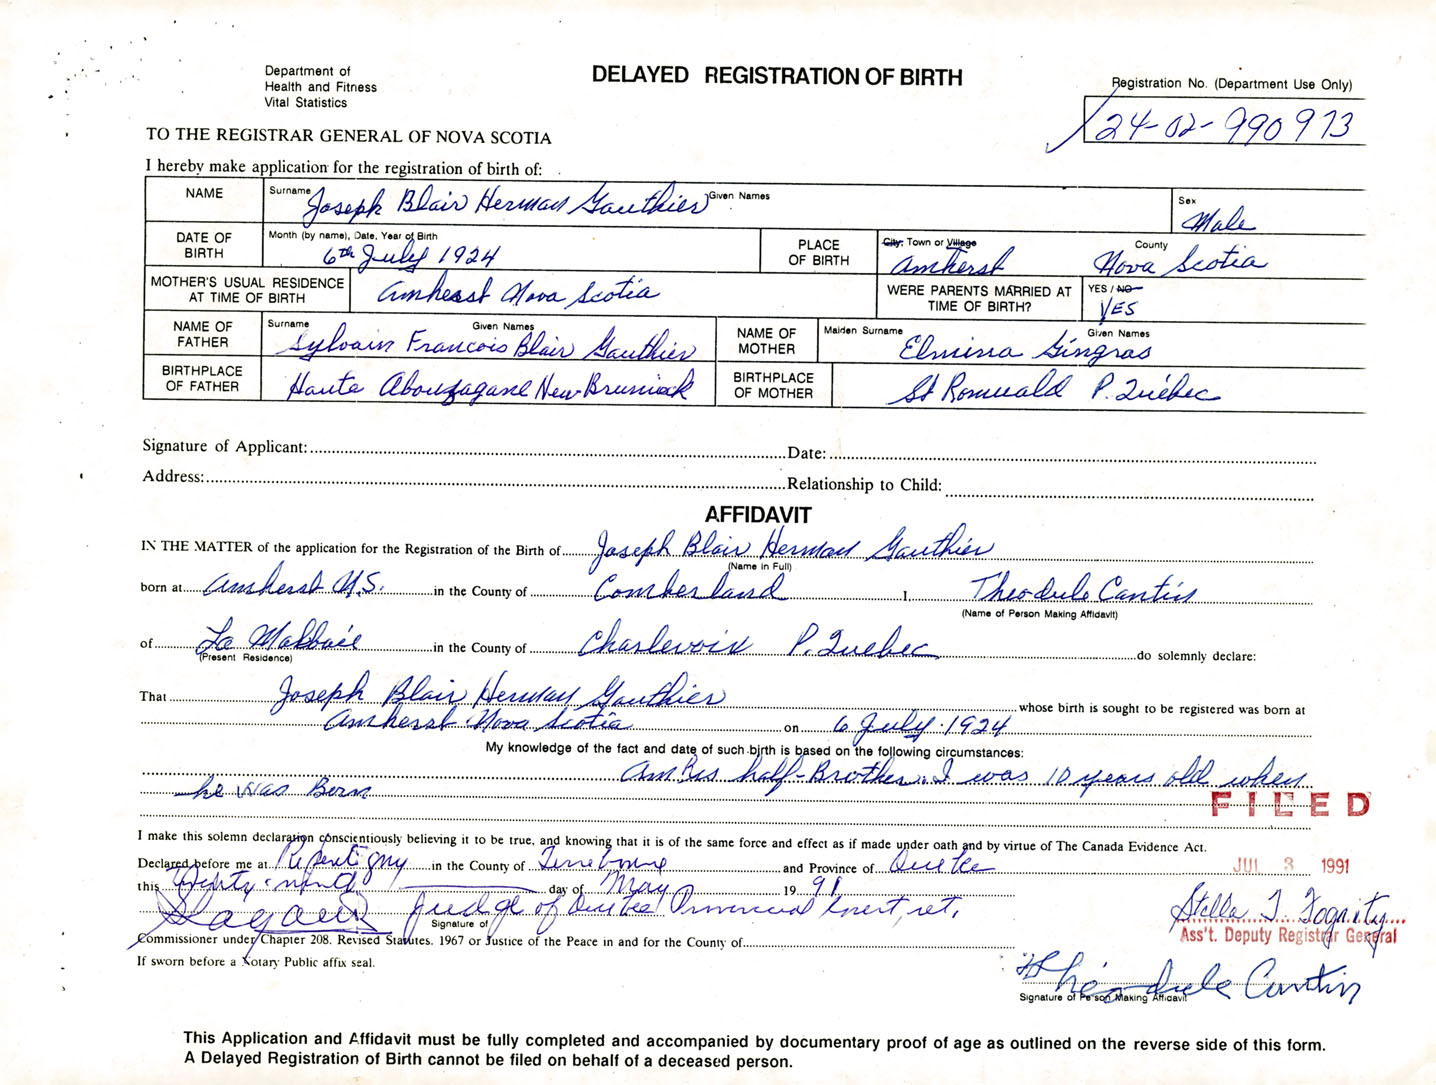 Department of
Health and Fitness
Vital Statistics
DELAYED REGISTRATION OF BIRTH
Registration No. (Department Use Only)
24-02-990973
TO THE REGISTRAR GENERAL OF NOVA SCOTIA
I hereby make application for the registration of birth of:
NAME Surname Joseph Blair Herman Gauthier Given Names Sex Male
DATE OF BIRTH Month (by name), Date, Year of Birth 6th July 1924 PLACE OF BIRTH City, Town or Village Amherst County Nova Scotia
MOTHER'S USUAL RESIDENCE AT TIME OF BIRTH Amherst Nova Scotia WERE PARENTS MARRIED AT TIME OF BIRTH? YES / NO YES
NAME OF FATHER Surname Given Names Sylvain Francois Blair Gauthier NAME OF MOTHER Maiden Surname Given Names Elmina Gingras
BIRTHPLACE OF FATHER Haute Aboujagane New Brunswick BIRTHPLACE OF MOTHER St Romuald P. Québec
Signature of Applicant: Date:
Address: Relationship to Child:
AFFIDAVIT
IN THE MATTER of the application for the Registration of the Birth of Joseph Blair Herman Gauthier
(Name in Full)
born at Amherst N.S. in the County of Comberland I, Theodule Cantin
(Name of Person Making Affidavit)
of La Malbaie in the County of Charlevoix P. Quebec do solemnly declare:
(Present Residence)
That Joseph Blair Herman Gauthier whose birth is sought to be registered was born at
Amherst Nova Scotia on 6 July 1924
My knowledge of the fact and date of such birth is based on the following circumstances:
Am his half-Brother. I was 10 years old when
he was Born
FILED
I make this solemn declaration conscientiously believing it to be true, and knowing that it is of the same force and effect as if made under oath and by virtue of The Canada Evidence Act.
Declared before me at Repentigny in the County of Terrebonne and Province of Quebec
JUL 3 1991
this day of May 19 91
Judge of Quebec Provincial Court, ret.
Signature of
Stella T.
Ass't. Deputy Registrar General
Commissioner under Chapter 208. Revised Statutes. 1967 or Justice of the Peace in and for the County of
If sworn before a Notary Public affix seal.
Théodule Cantin
Signature of Person Making Affidavit
This Application and Affidavit must be fully completed and accompanied by documentary proof of age as outlined on the reverse side of this form.
A Delayed Registration of Birth cannot be filed on behalf of a deceased person.